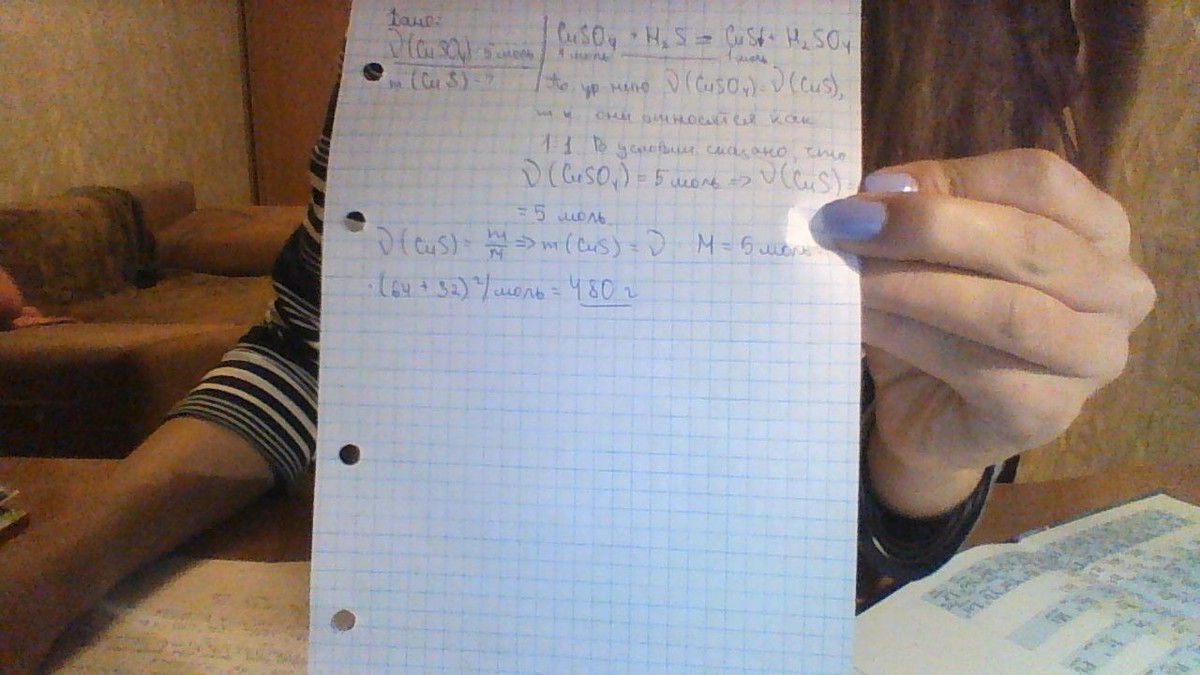 Дано:
ν(CuSO4)=5 моль
m(CuS)-?
CuSO4 + H2S = CuS↓ + H2SO4
1 моль 1 моль
По ур-нию ν(CuSO4)=ν(CuS),
т.к они относятся как
1:1. В условии сказано, что
ν(CuSO4) = 5 моль => ν(CuS) =
= 5 моль.
ν(CuS) = m/M => m(CuS) = ν M = 5 моль
·(64 + 32) г/моль = 480 г